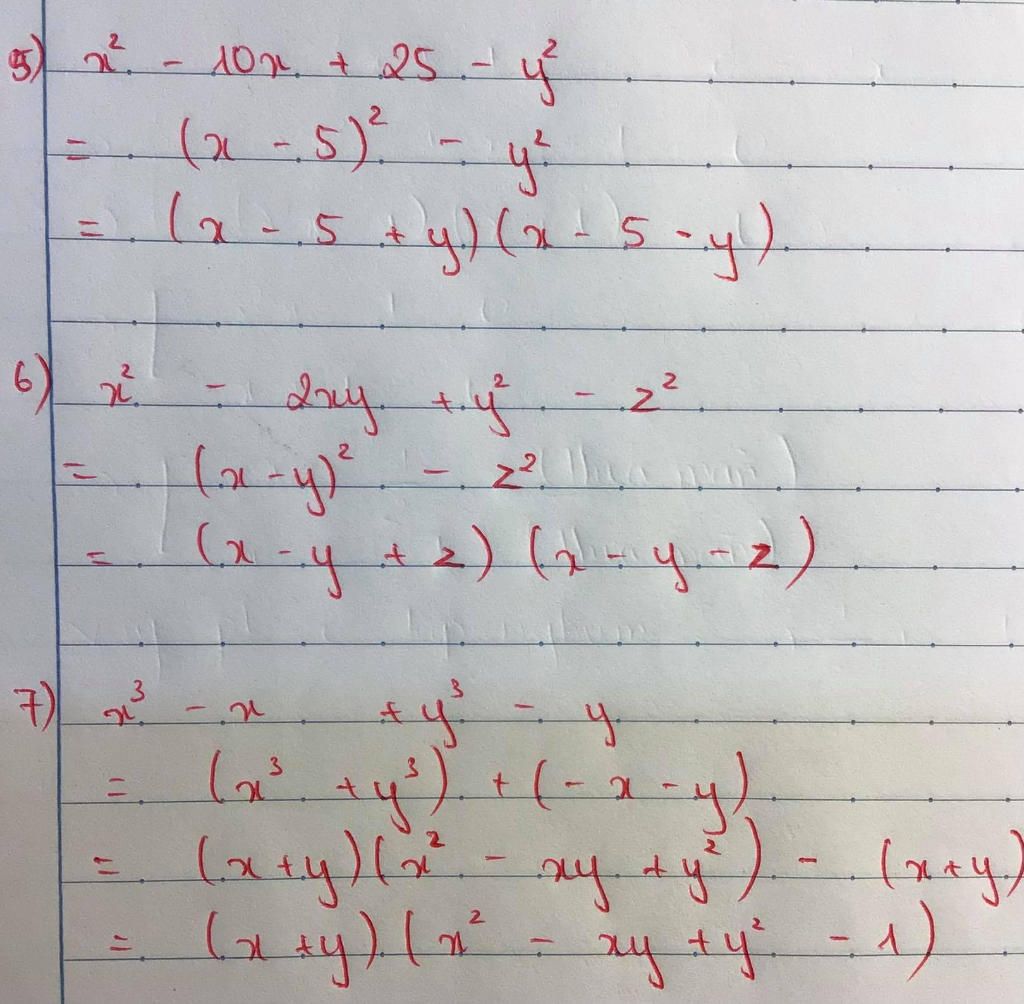 5) x² - 10x + 25 - y²
= (x - 5)² - y²
= (x - 5 + y)(x - 5 - y)
6) x² - 2xy + y² - z²
= (x-y)² - z²
= (x - y + z) (x - y - z)
7) x³ - x + y³ - y
= (x³ + y³) + (- x - y)
= (x+y)(x² - xy + y²) - (x+y)
= (x+y)(x² - xy + y² - 1)